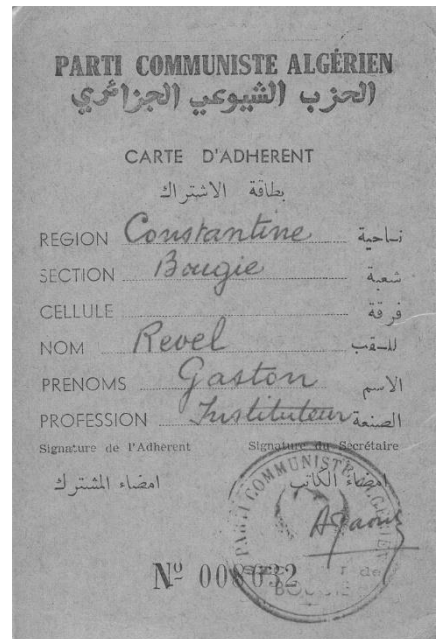 PARTI COMMUNISTE ALGÉRIEN
الحزب الشيوعي الجزائري
CARTE D'ADHERENT
بطاقة الاشتراك
REGION Constantine ناحية
SECTION Bougie شعبة
CELLULE فرقة
NOM Revel اللقب
PRENOMS Gaston الاسم
PROFESSION Instituteur الصنعة
Signature de l'Adherent Signature du Secrétaire
امضاء المشترك امضاء الكاتب
PARTI COMMUNISTE ALGÉRIEN
Nº 008032
BOUGIE